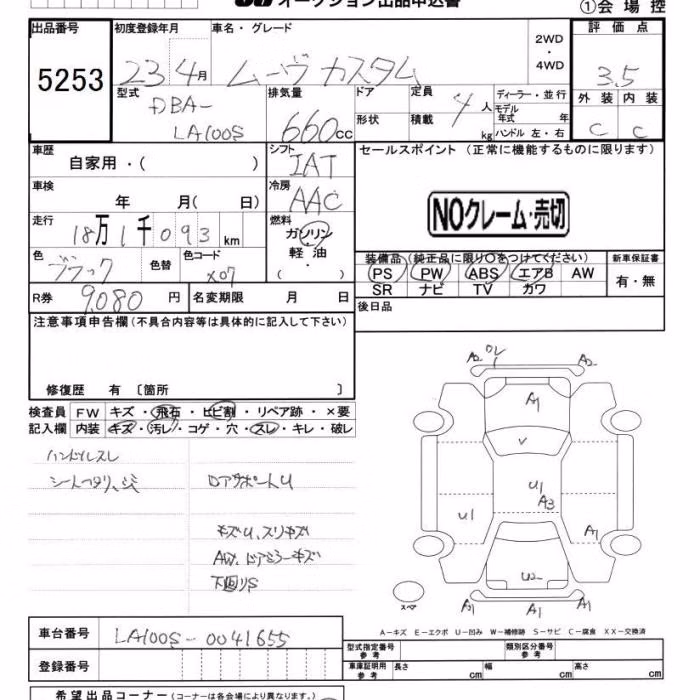 オークション出品申込書
①会場控
出品番号 初度登録年月 車名・グレード 2WD ・ 4WD 評価点
5253 23年4月 ムーヴ カスタム 3.5
型式 DBA- LA100S 排気量 660cc ドア 形状 定員 4人 積載 kg ディーラー・並行 モデル年式 年 ハンドル 左・右 外装 内装
C C
車歴 自家用・( ) シフト IAT セールスポイント (正常に機能するものに限ります)
車検 年 月( 日) 冷房 AAC
NOクレーム・売切
走行 18万1千093km 燃料 ガソリン 軽油 ・( )
色 ブラック 色替 色コード X07
装備品(純正品に限り○をつけてください) 新車保証書
PS PW ABS エアB AW 有・無
SR ナビ TV カワ
R券 9,080円 名変期限 月 日 後日品
注意事項申告欄(不具合内容等は具体的に記入して下さい)
修復歴 有 〔箇所 〕
検査員 FW キズ・飛石・ヒビ割・リペア跡・×要
記入欄 内装 キズ・汚レ・コゲ・穴・スレ・キレ・破レ
ハンドルスレ
シートヘタリ、シミ ロアサポートU
キズU、スリキズ
AW、ドアミラーキズ
下回りS
A2 ワレ A2
A1
V
U1
A3
U1 A1
U2
スペア A1 A1
A-キズ E-エクボ U-凹み W-補修跡 S-サビ C-腐食 XX-交換済
車台番号 LA100S-0041655 型式指定番号 参考 類別区分番号 参考
登録番号 車庫証明用 参考 長さ cm 幅 cm 高さ cm
希望出品コーナー(コーナーは各会場により異なります。)